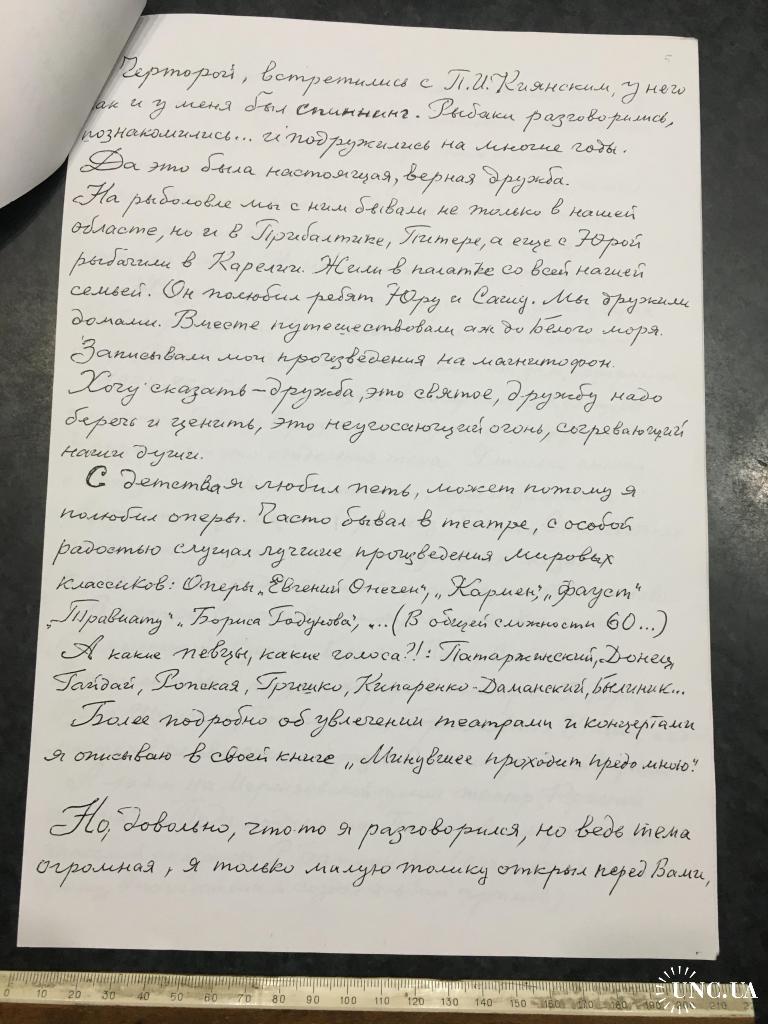 Черторой, встретились с П.И.Киянским, у него
так и у меня был спиннинг. Рыбаки разговорились,
познакомились... и подружились на многие годы.
Да это была настоящая, верная дружба.
На рыболовле мы с ним бывали не только в нашей
области, но и в Прибалтике, Питере, а еще с Юрой
рыбачили в Карелии. Жили в палатке со всей нашей
семьей. Он полюбил ребят Юру и Сашу. Мы дружили
домами. Вместе путешествовали аж до Белого моря.
Записывали мои произведения на магнитофон.
Хочу сказать – дружба, это святое, дружбу надо
беречь и ценить, это неугосающий огонь, согревающий
наши души.
С детства я любил петь, может потому я
полюбил оперы. Часто бывал в театре, с особой
радостью слушал лучшие произведения мировых
классиков: Оперы „Евгений Онеген", „Кармен", „Фауст"
„Травиату" „Бориса Годунова", ... (В общей сложности 60...)
А какие певцы, какие голоса?!: Патаржинский, Донец
Гайдай, Ропская, Гришко, Кипаренко-Даманский, Былиник...
Более подробно об увлечении театрами и концертами
я описываю в своей книге „Минувшее проходит предо мною".
Но, довольно, что-то я разговорился, но ведь тема
огромная, я только малую толику открыл перед Вами,
0 10 20 30 40 50 60 70 80 90 100 110 120 130 140 150 160 170 180 190 200 210
UNC.UA